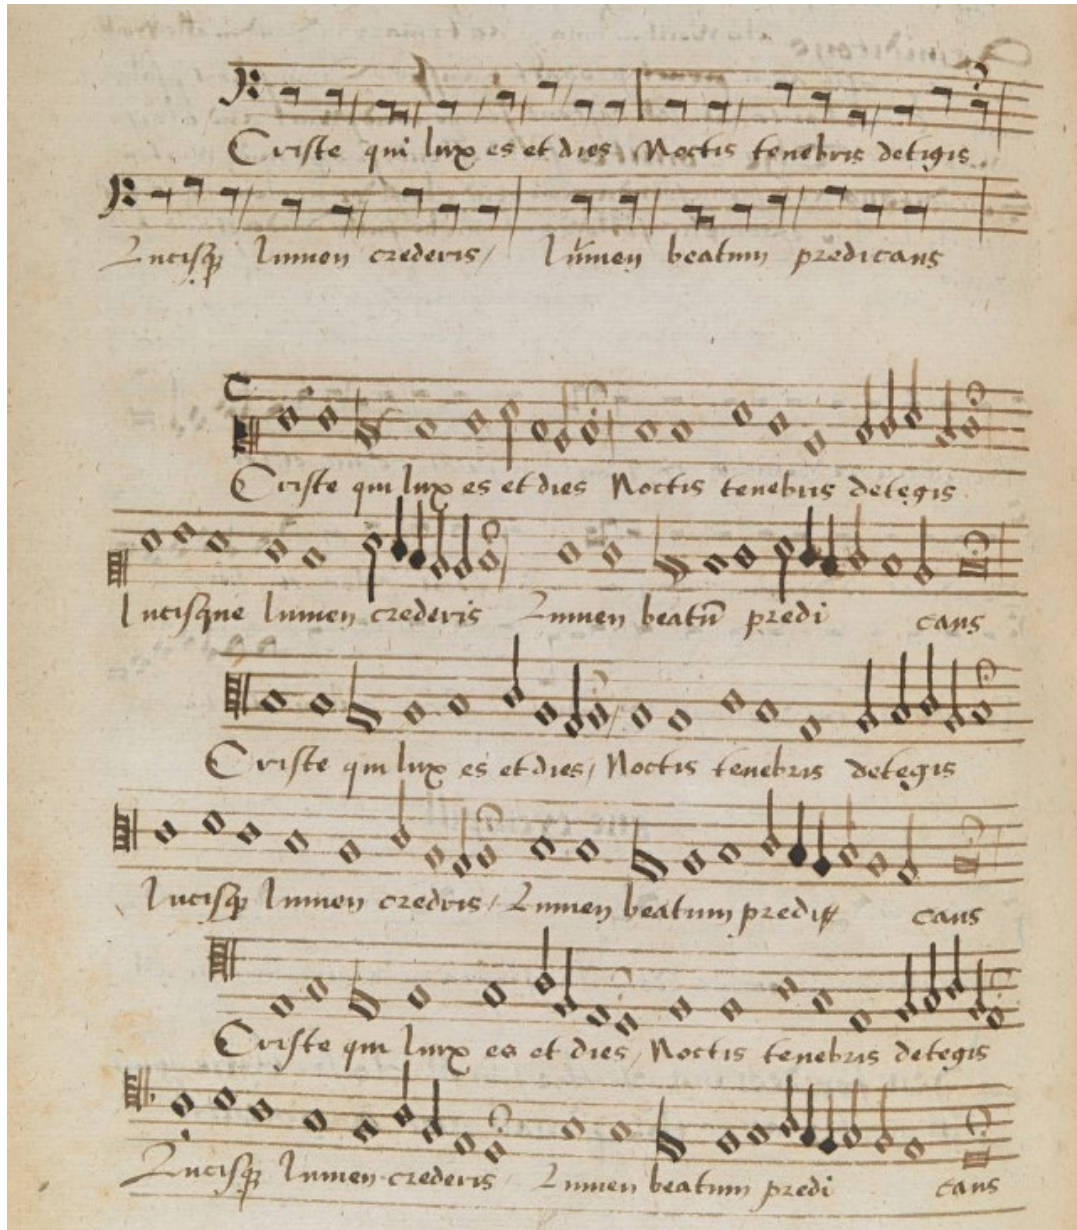 Criste qui lux es et dies Noctis tenebris detigis
Lucisq lumen crederis / lumen beatum predicans
Criste qui lux es et dies Noctis tenebris detegis
lucisque lumen crederis Lumen beatū predi cans
Criste qui lux es et dies / Noctis tenebris detegis
lucisq lumen credris / Lumen beatum predi cans
Criste qui lux es et dies / Noctis tenebris detegis
Lucisq lumen crederis / Lumen beatum predi cans